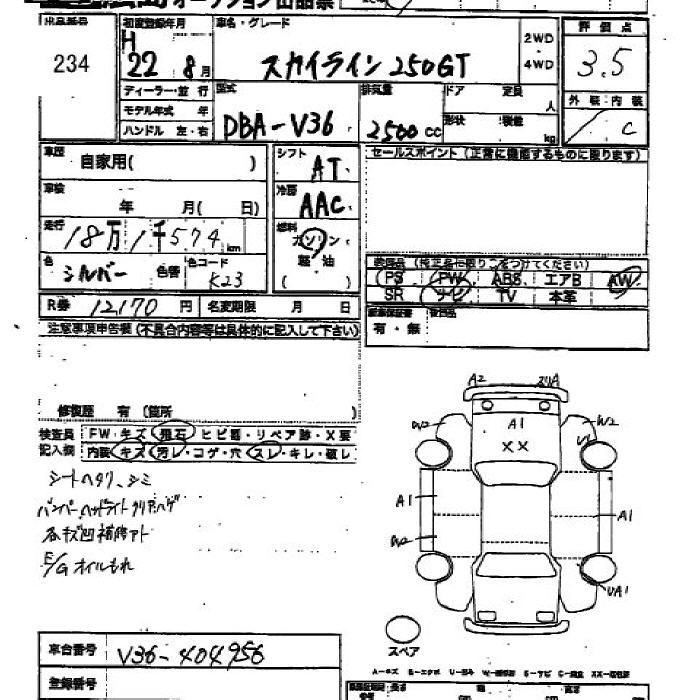 オークション出品票
出品番号 初度登録年月 車名・グレード 評価点
234 H 22 8月 スカイライン250GT 2WD・4WD 3.5
ディーラー・並行 型式 排気量 ドア 定員 人 外装 内装
モデル年式 年 DBA-V36 2500cc 形状 積載 kg C
ハンドル 左・右
車歴 自家用( ) シフト AT セールスポイント(正常に機能するものに限ります)
車検 年 月( 日) 冷房 AAC
走行 18万1千574km 燃料 ガソリン・軽油( )
色 シルバー 色替 色コード K23
装備品(純正品に限り○をつけてください)
PS PW ABS エアB AW
SR ナビ TV 本革
R券 12170円 名変期限 月 日 有・無 後日品
注意事項申告欄(不具合内容等は具体的に記入して下さい)
修復歴 有(箇所 )
検査員 FW・キズ 飛石 ヒビ割・リペア跡・X要
記入欄 内装 キズ 汚レ・コゲ・穴 スレ・キレ・破レ
シートヘタリ、シミ
バンパーヘッドライトクリアハゲ
各キズ凹補修アト
E/Gオイルもれ
A2
A1
XX
W2
W2
U1
A1
A1
W2
UA1
スペア
車台番号 V36-404956
登録番号